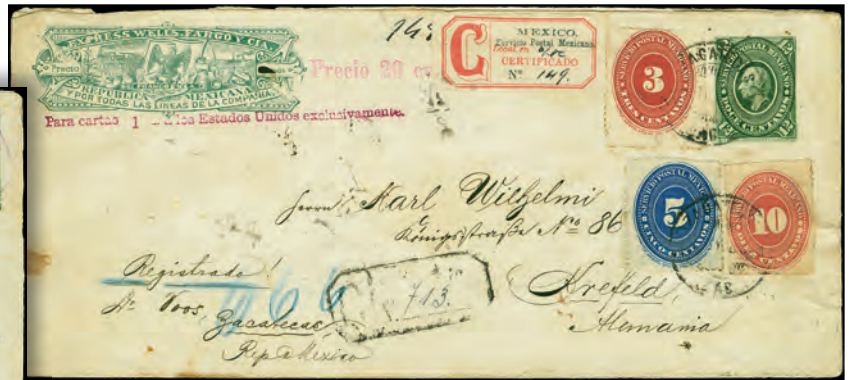 EXPRESS WELLS FARGO Y CIA.
Precio
FRANQUEADA
REPUBLICA MEXICANA
Y POR TODAS LAS LINEAS DE LA COMPAÑIA
Precio 20 c
Para cartas 1 los Estados Unidos exclusivamente.
C
MEXICO.
Servicio Postal Mexicano.
CERTIFICADO
N° 149.
SERVICIO POSTAL MEXICANO
3
TRES CENTAVOS
SERVICIO POSTAL MEXICANO
12
DOCE CENTAVOS
SERVICIO POSTAL MEXICANO
5
CINCO CENTAVOS
SERVICIO POSTAL MEXICANO
10
DIEZ CENTAVOS
Herrn Karl Wilhelmi
Königsstraße No 86
Krefeld,
Alemania
Registrado!
713.
Voos,
Zacatecas,
Rep. de Mexico